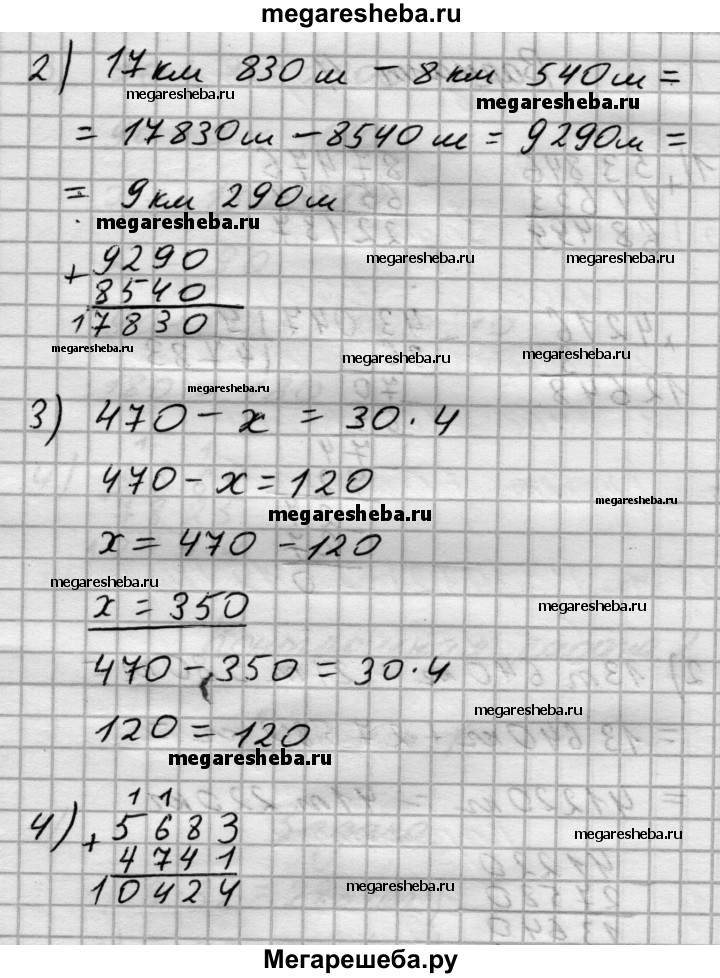 megaresheba.ru
2) 17км 830м - 8км 540м =
megaresheba.ru megaresheba.ru
= 17830м - 8540м = 9290м =
= 9км 290м
megaresheba.ru
megaresheba.ru megaresheba.ru
+ 9290
8540
17830
megaresheba.ru megaresheba.ru megaresheba.ru
megaresheba.ru
3) 470 - x = 30 · 4
470 - x = 120
megaresheba.ru
megaresheba.ru
x = 470 - 120
megaresheba.ru
x = 350
megaresheba.ru
470 - 350 = 30 · 4
megaresheba.ru
120 = 120
megaresheba.ru
1 1
4) + 5683
4741
10424
megaresheba.ru
megaresheba.ru
Мегарешеба.ру